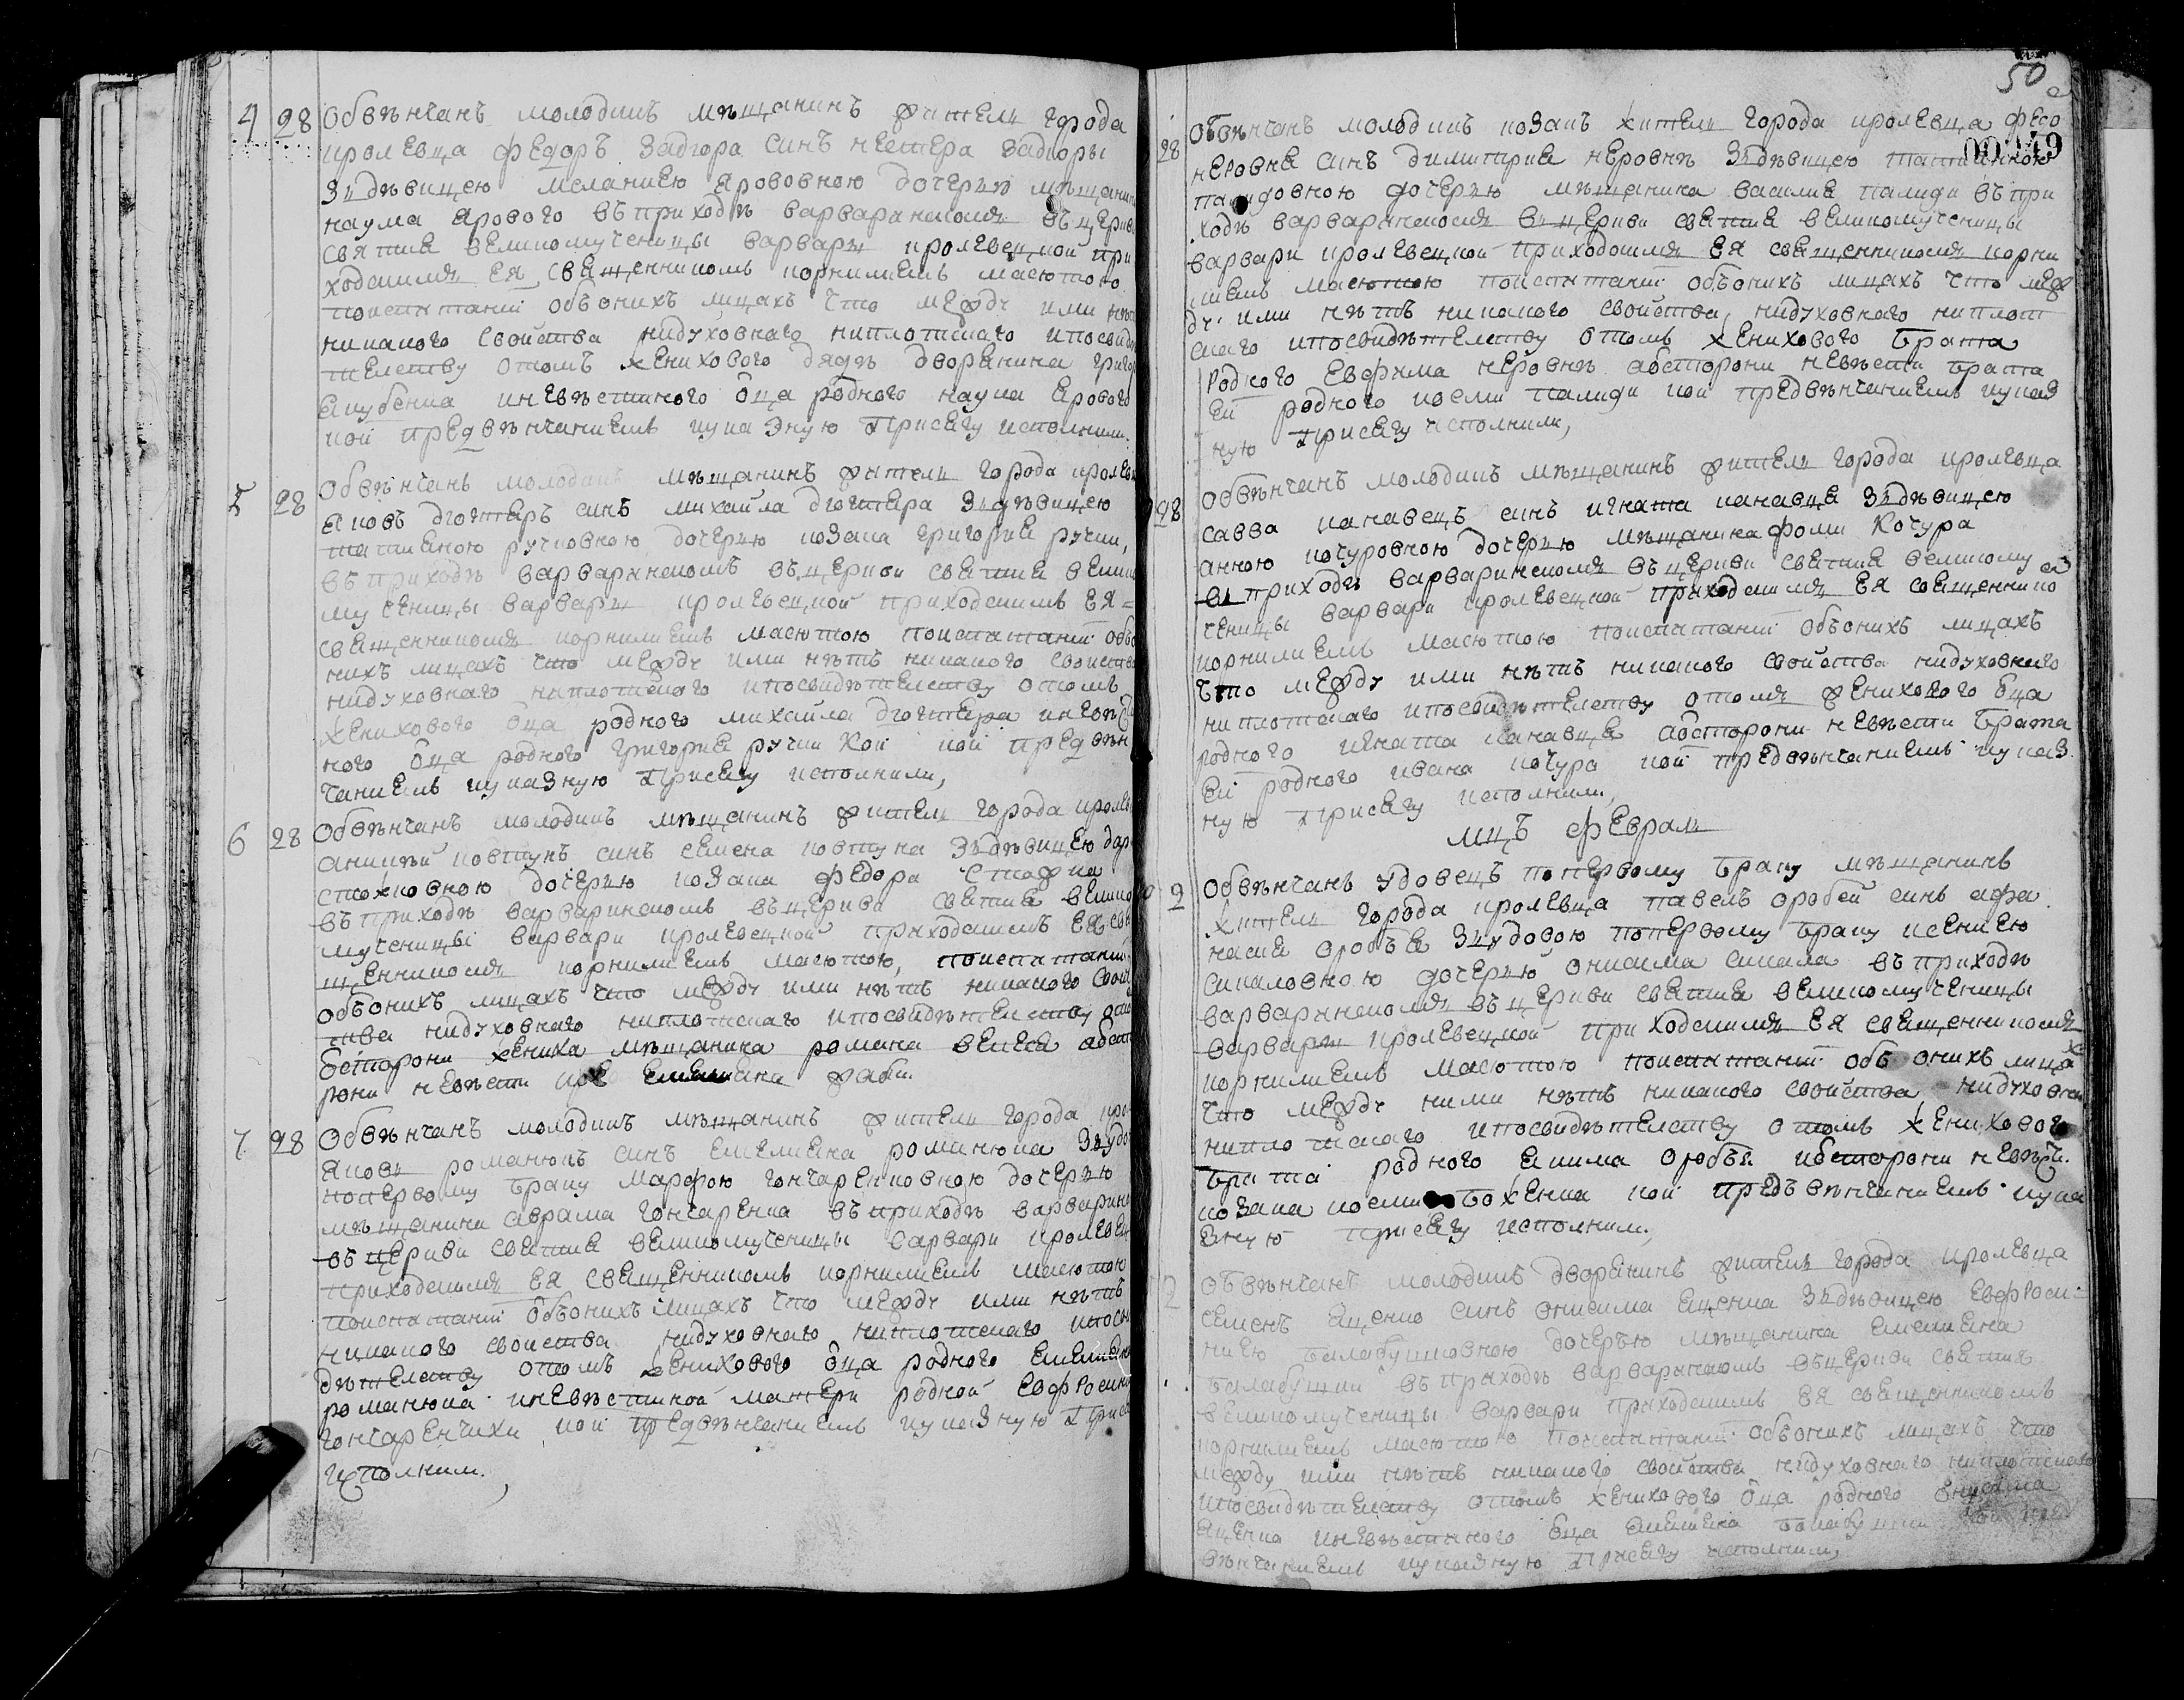 4 28 Обвѣнчанъ молодикъ мѣщанинъ житель города
кролевца федоръ Задгора синъ нестера Задгоры
Зъдѣвицею меланиею яровокною дочерю мѣщанина
наума ярового въприходѣ варваринскомъ въцеркви
святия великомученицы варвари кролевецкой при
ходскимъ ея священникомъ корнилиемъ масютою
поиспитании обьонихъ лицахъ что между ими нѣтъ
никакого свойства нидуховнаго ниплотскаго ипосвидѣ
телству отомъ женихового дядѣ дворянина
якубенка иневѣстиного оца родного наума ярового
кои предвѣнчаниемъ куназную присягу исполнили.
5 28 Обвѣнчанъ молодикъ мѣщанинъ житель города кролев
яковъ дготяръ синъ михайла дготяра Зъдѣвицею
татияною ручковною дочерю козака григория ручки,
въприходѣ варваринскомъ въцеркви святия велико
мученицы варвари кролевецкой приходскимъ ея=
священникомъ корнилиемъ масютою поиспитании объо
нихъ лицахъ что между ими нѣтъ никакого свойства
нидуховнаго ниплотского ипосвидѣтелству отомъ
женихового оца родного михайла дготяра иневѣсти
ного оца родного григория ручки кои предвѣн
чаниемъ куназную присягу исполнили,
6 28 Обвѣнчанъ молодикъ мѣщанинъ житель города кролев
аникѣй ковтунъ синъ семена ковтуна Зъдѣвицею
стожковною дочерю козака федора стожка
въприходѣ варваринскомъ въцеркви святия велико
мученицы варвари кролевецкой приходскимъ ея свя
щенникомъ корнилиемъ масютою, поиспитании
обьонихъ лицахъ что между ими нѣтъ никакого свой
ства нидуховнаго ниплотскаго ипосвидѣтелству
бсторони жениха мѣщанина романа абст
рони невѣсти
7 28 Обвѣнчанъ молодикъ мѣщанинъ житель города кро
яковъ романюкъ синъ емелияна романюка Зъудо
попервому браку марфою гончаренковною дочерю
мѣщанина аврама гончаренка въприходѣ варварин
въцеркви святия великомученицы варвари кролевец
приходскимъ ея священникомъ корнилиемъ масютою
поиспитании обьонихъ лицахъ что между ими нѣтъ
никакого свойства нидуховнаго ниплотскаго ипосви
дѣтелству отомъ женихового оца родного емелияна
романюка иневѣстиной матери родной евфросинии
гончаренчихи кои предвѣнчаниемъ куназную прися
исполнили.
50
00049
28 Обвѣнчанъ молодикъ козакъ житель города кролевца
неровня синъ димитрия неровнѣ Зъдѣвицею татияною
дочерю мѣщанина василия палиди въпри
ходѣ варваринскомъ въцеркви святия великомученицы
варвари кролевецкой приходскимъ ея священникомъ корни
лиемъ масютою поиспитании обьонихъ лицахъ что меж
ду ими нѣтъ никакого свойства, нидуховнаго ниплот
скаго ипосвидѣтелству отомъ женихового брата
родного евфима неровнѣ абсторони невѣсти брата
ей родного палиди кои предвѣнчаниемъ куназ
ную присягу исполнили,
28 Обвѣнчанъ молодикъ мѣщанинъ житель города кролевца
савва канавецъ синъ игната канавца Зъдѣвицею
анною кочуровною дочерю мѣщанина фоми кочура
въприходѣ варваринскомъ въцеркви святия великому
ченицы варвари кролевецкой приходскимъ ея священнико
корнилиемъ масютою поиспитании обьонихъ лицахъ
что между ими нѣтъ никакого свойства нидуховнаго
ниплотскаго ипосвидѣтелству отомъ женихового оца
родного игната канавца абсторони невѣсти брата
ей родного ивана кочура кои предвѣнчаниемъ куназ
ную присягу исполнили,
мцъ февраль
2 Обвѣнчанъ удовецъ попервому браку мѣщанинъ
житель города кролевца павелъ оробей синъ афа
насия оробъя Зъудовою попервому браку ксениею
сикаловною дочерю онисима сикала въприходѣ
варваринскомъ въцеркви святия великомученицы
варвари кролевецкой приходскимъ ея священникомъ
корнилиемъ масютою поиспитании объ онихъ лицахъ
что между ними нѣтъ никакого свойства нидуховна
ниплотскаго ипосвидѣтелству отомъ женихового
брата родного якима оробъя ибсторони невѣсти
козака боженка кои предъвѣнчаниемъ куна
зную присягу исполнили,
2 Обвѣнчанъ молодикъ дворянинъ житель города кролевца
семенъ яценко синъ онисима яценка Зъдѣвицею евфроси
ниею балабушковною дочерью мѣщанина емелияна
балабушки въприходѣ варваринскомъ въцеркви святия
великомученицы варвари приходскимъ ея священникомъ
корнилиемъ масютою поиспитании обьонихъ лицахъ что
между ими нѣтъ никакого свойства нидуховнаго ниплотскаго
ипосвидѣтелству отомъ женихового оца родного онисима
яценка иневѣстиного оца емелияна балабушки кои пред
вѣнчаниемъ куназную присягу исполнили,